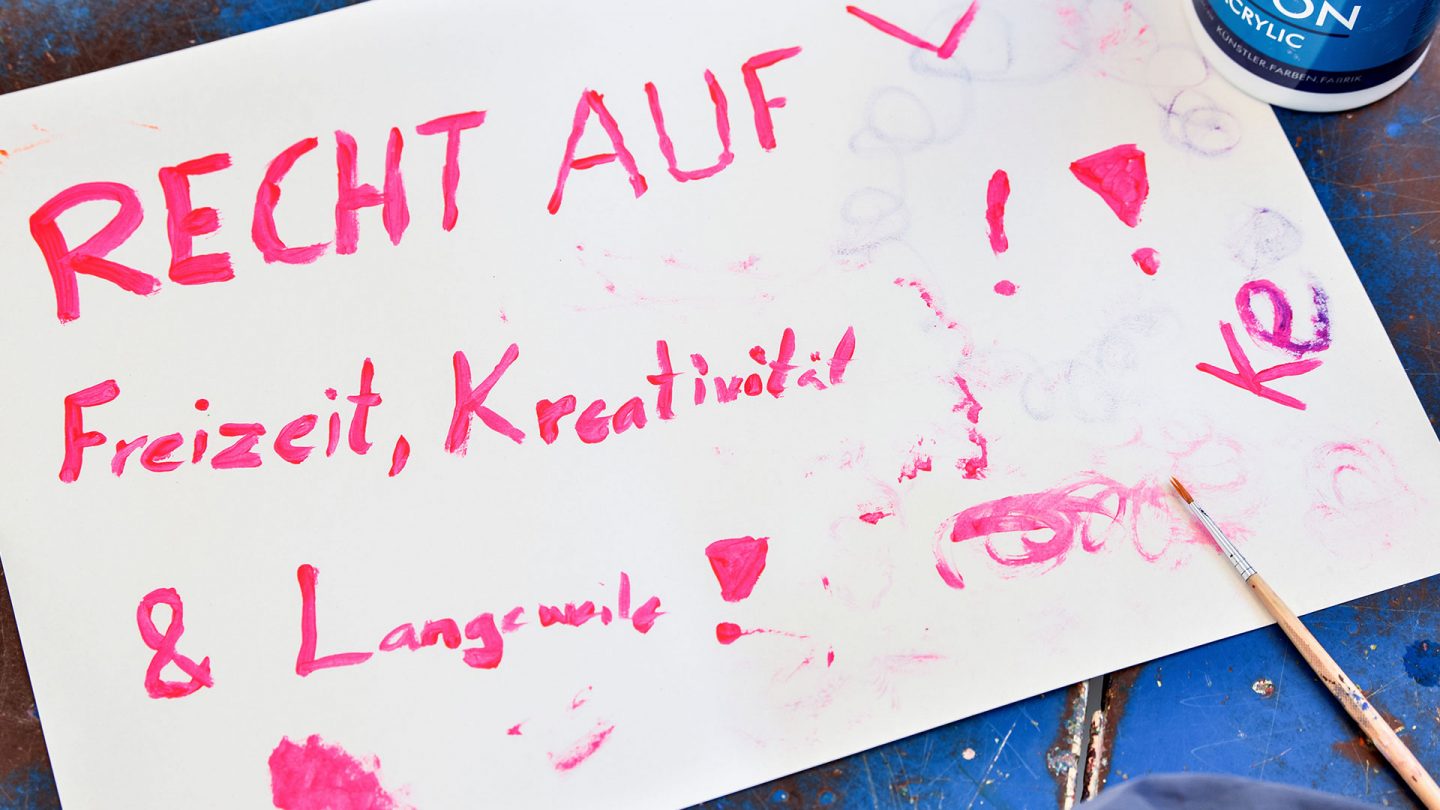 RECHT AUF
Freizeit, Kreativität
& Langeweile!
! !
Ke
ON
ACRYLIC
KÜNSTLER.FARBEN.FABRIK